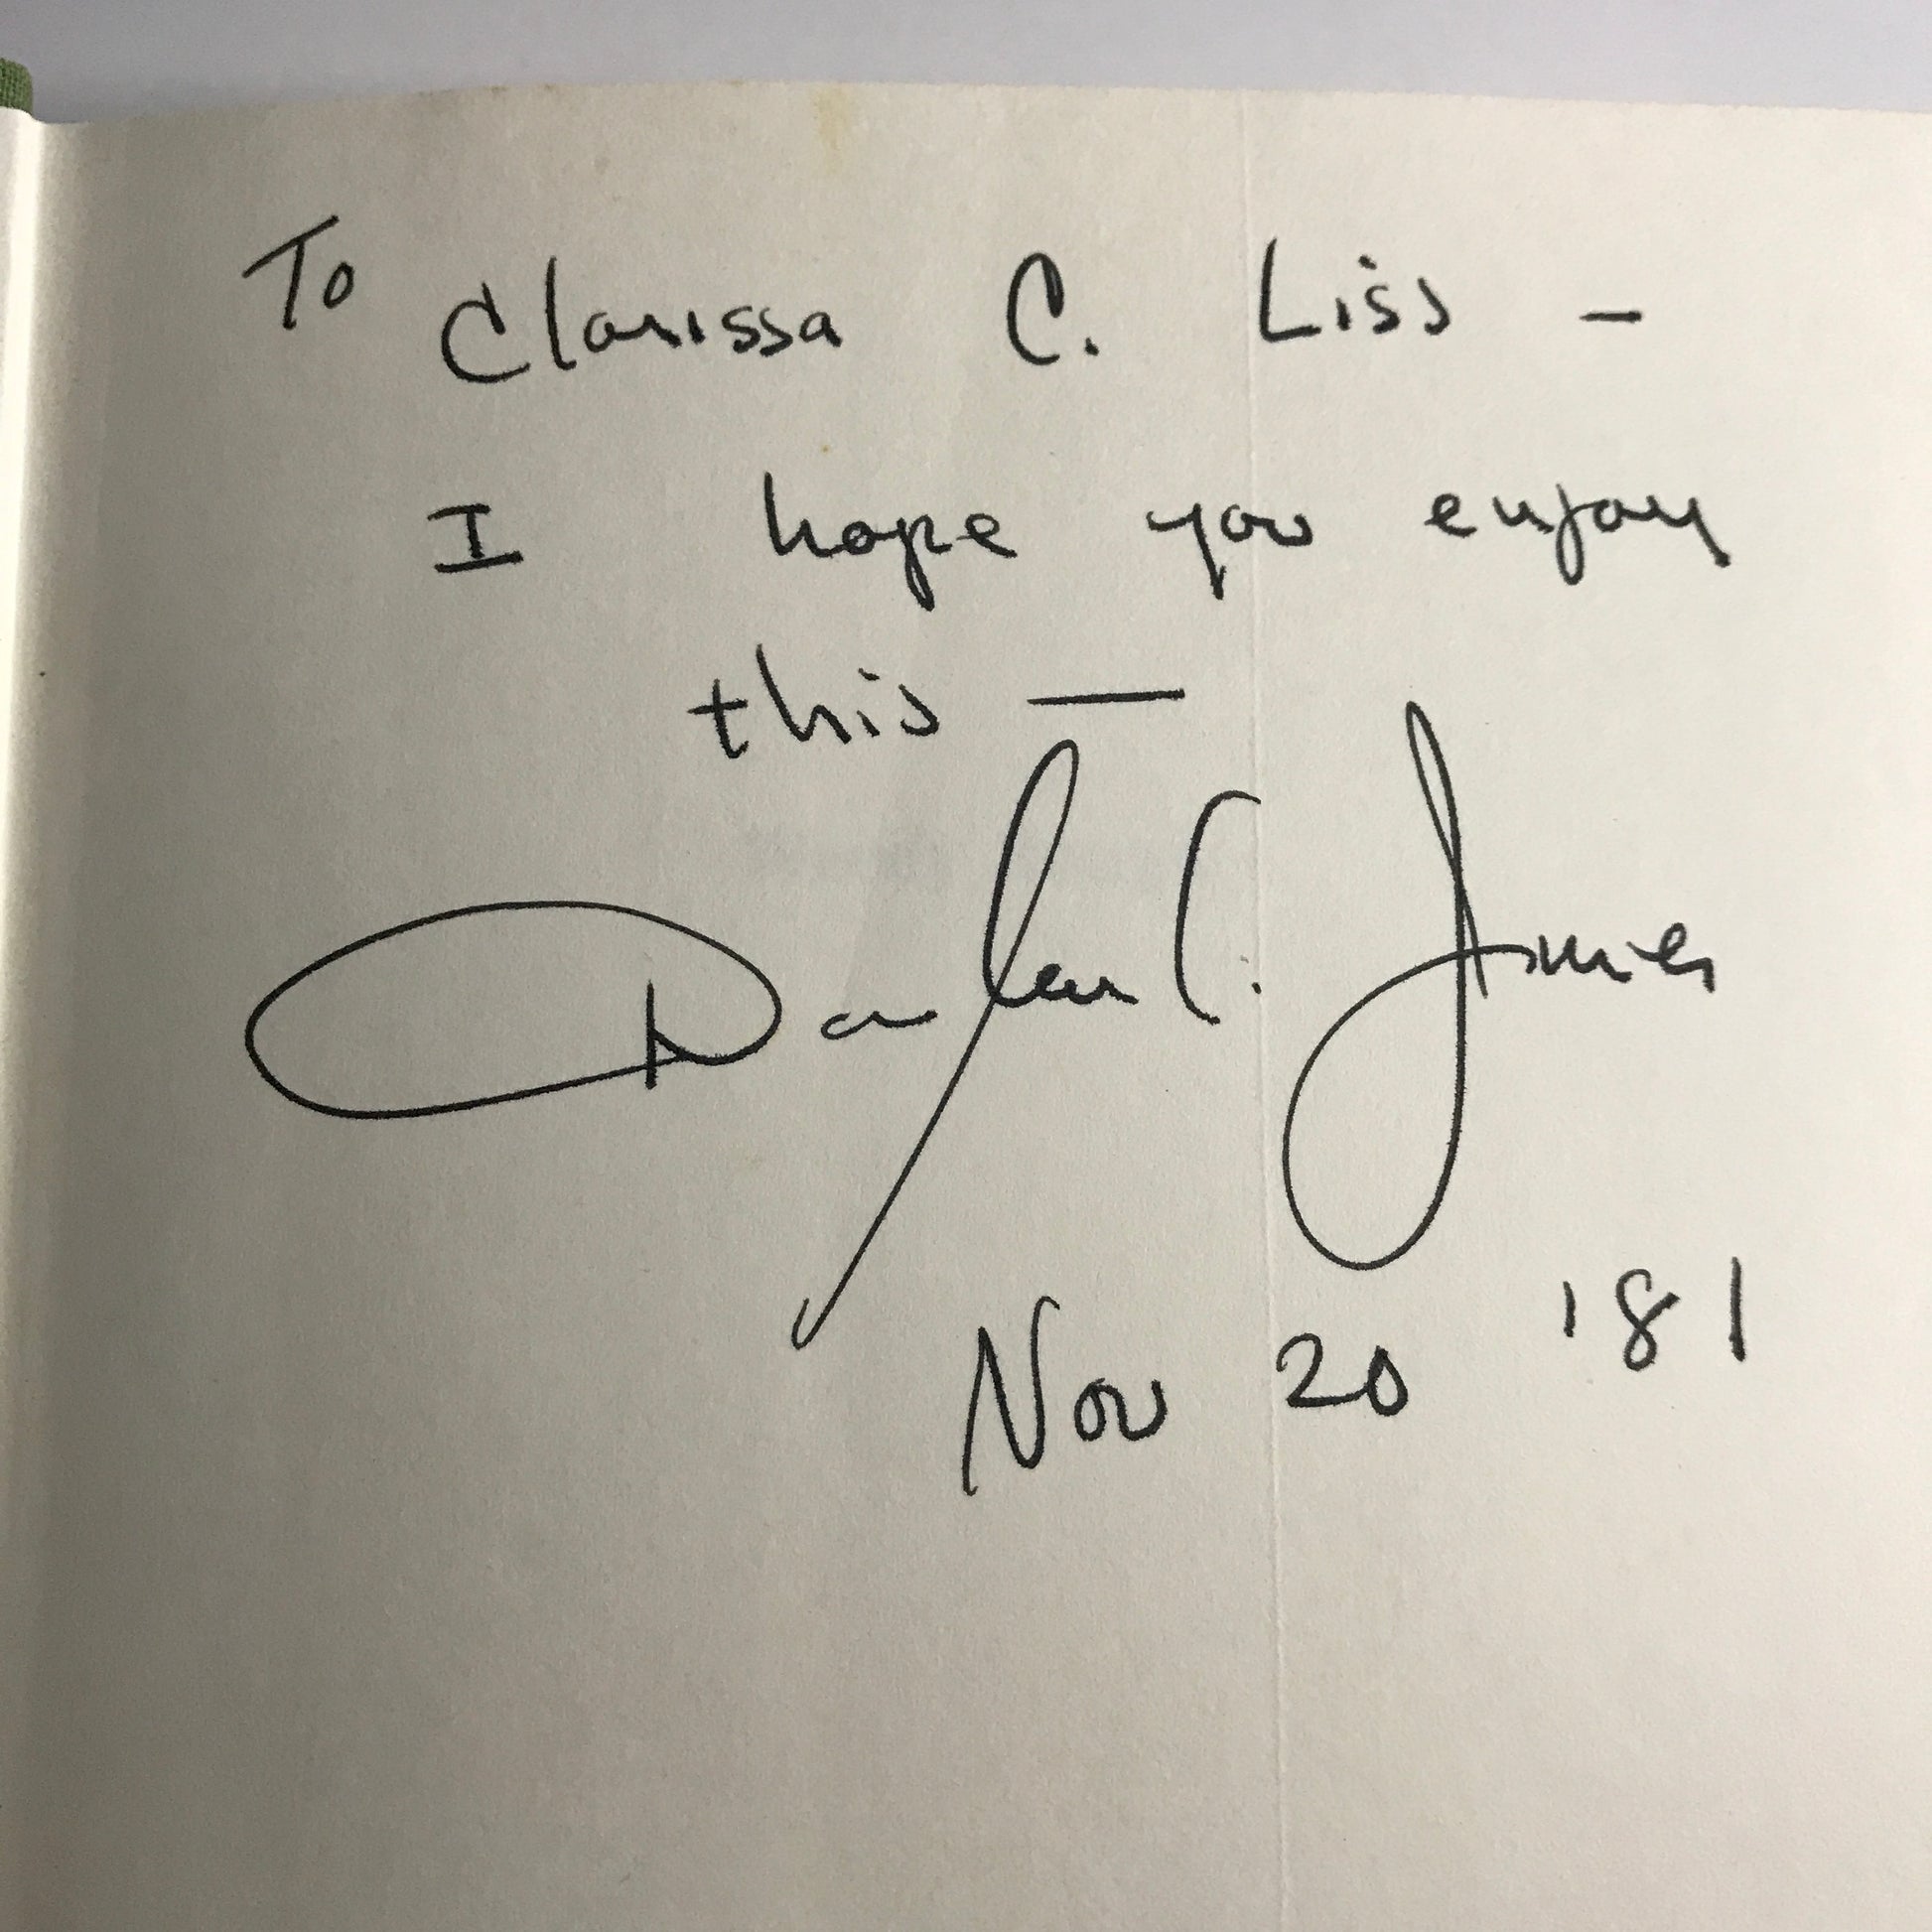 To Clarissa C. Liss –
I hope you enjoy
this —
C.
Nov 20 '81